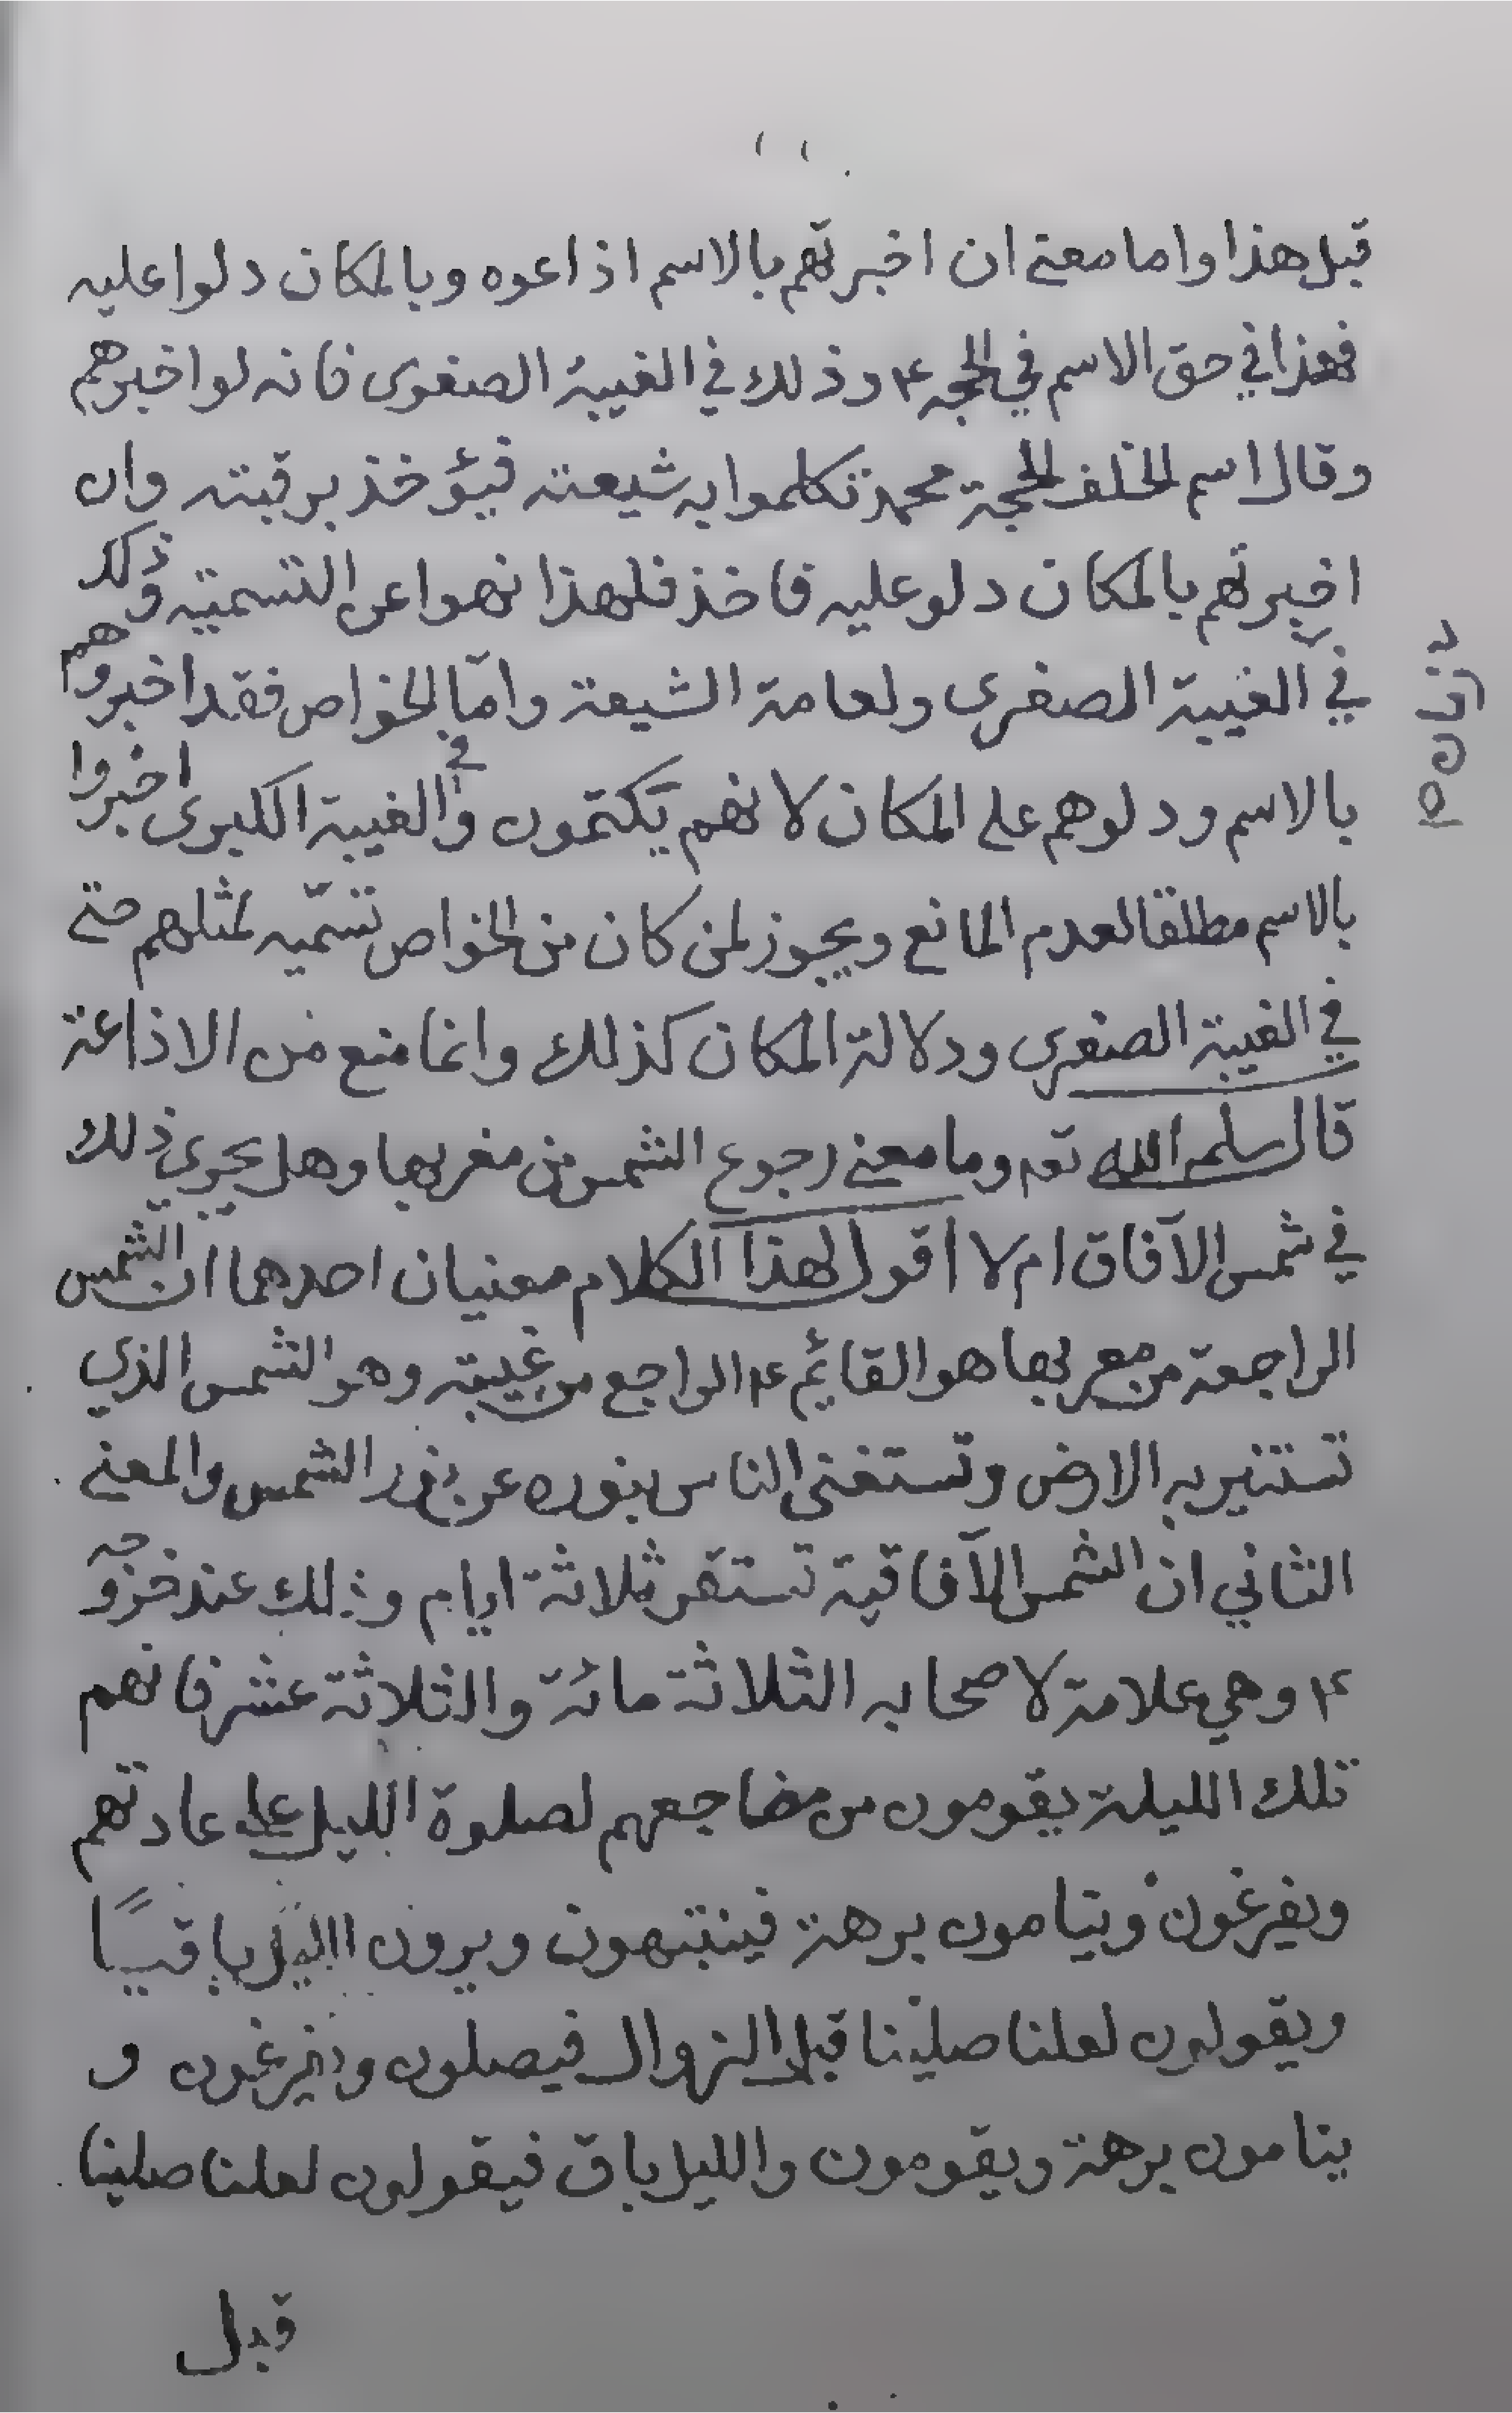 قبل هذا واما معنى ان اخبرتهم بالاسم اذاعوه وبالمكان دلوا عليه
فهذا في حق الاسم في الحجه ع۴ وذلك في الغيبة الصغرى فانه لو اخبرهم
وقال اسم الخلف الحجة محمد تكلموا به شيعته فيؤخذ برقبته وان
اخبرتهم بالمكان دلو عليه فاخذ فلهذا نهوا عن التسمية وذلك
في الغيبة الصغرى ولعامة الشيعة وامّا الخواص فقد اخبروهم
بالاسم ودلوهم على المكان لانهم يكتمون وفي الغيبة الكبرى اخبروا
بالاسم مطلقا لعدم المانع ويجوز لمن كان من الخواص تسمّيه لمثلهم حتى
في الغيبة الصغرى ودلالة المكان كذلك وانما منع من الاذاعة
قال سلمه الله تعه وما معنى رجوع الشمس من مغربها وهل يجرى ذلك
في شمس الآفاق ام لا اقول لهذا الكلام معنيان احدهما ان الشمس
الراجعة من مغربها هو القايئم ع۴ الراجع من غيبته وهو الشمس الذي
تستنير به الارض وتستغنى الناس بنوره عن نور الشمس والمعنى
الثاني ان الشمس الآفاقية تستقر ثلاثة ايام وذلك عند خروجه
ع۴ وهي علامة لاصحابه الثلاثة مائة والثلاثة عشر فانهم
تلك الليلة يقومون من مضاجعهم لصلوة الليل على عادتهم
ويفرغون وينامون برهة فينتبهون ويرون الليل باقيًا
ويقولون لعلنا صلينا قبل الزوال فيصلون ويفرغون و
ينامون برهة ويقومون والليل باق فيقولون لعلنا صلينا
قبل